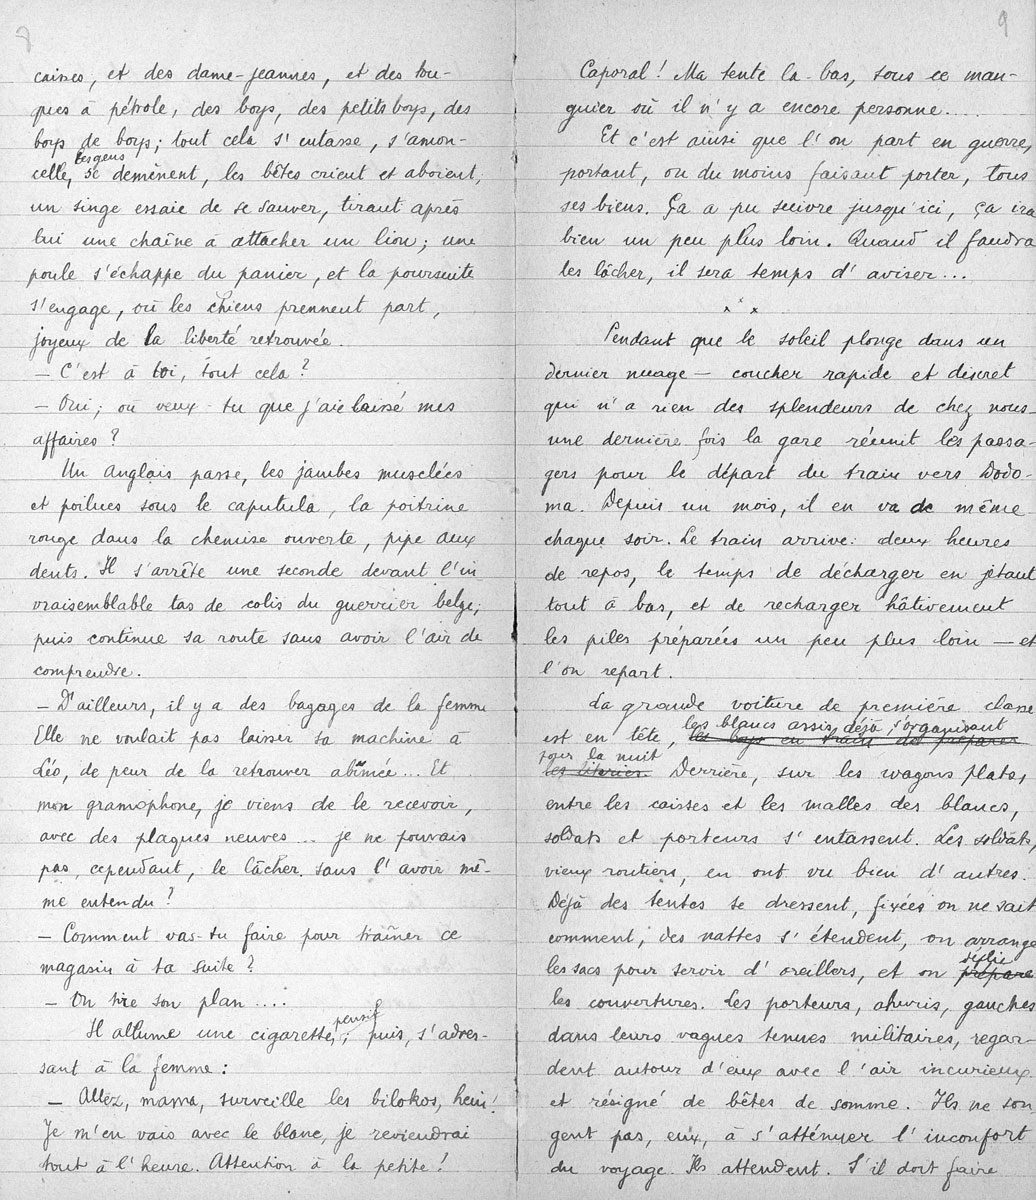 8
caisses, et des dame-jeannes, et des tou-
ques à pétrole, des boys, des petits boys, des
boys de boys; tout cela s'entasse, s'amon-
celle, les gens se démènent, les bêtes crient et aboient,
un singe essaie de se sauver, tirant après
lui une chaîne à attacher un lion; une
poule s'échappe du panier, et la poursuite
s'engage, où les chiens prennent part,
joyeux de la liberté retrouvée.
— C'est à toi, tout cela?
— Oui; où veux-tu que j'aie laissé mes
affaires?
Un Anglais passe, les jambes musclées
et poilues sous le caputula, la poitrine
rouge dans la chemise ouverte, pipe aux
dents. Il s'arrête une seconde devant l'in
vraisemblable tas de colis du guerrier belge;
puis continue sa route sans avoir l'air de
comprendre.
— D'ailleurs, il y a des bagages de la femme
Elle ne voulait pas laisser sa machine à
Léo, de peur de la retrouver abîmée... Et
mon gramophone, je viens de le recevoir,
avec des plaques neuves... je ne pouvais
pas, cependant, le lâcher sans l'avoir mê-
me entendu?
— Comment vas-tu faire pour traîner ce
magasin à ta suite?
— On tire son plan....
Il allume une cigarette, pensif; puis, s'adres-
sant à la femme:
— Allez, mama, surveille les bilokos, hein!
Je m'en vais avec le blanc, je reviendrai
tout à l'heure. Attention à la petite!
9
Caporal! Ma tente là-bas, sous ce man-
guier où il n'y a encore personne....
Et c'est ainsi que l'on part en guerre,
portant, ou du moins faisant porter, tous
ses biens. Ça a pu suivre jusqu'ici, ça ira
bien un peu plus loin. Quand il faudra
les lâcher, il sera temps d'aviser...
x x x
Pendant que le soleil plonge dans un
dernier nuage — coucher rapide et discret
qui n'a rien des splendeurs de chez nous —
une dernière fois la gare réunit les passa-
gers pour le départ du train vers Dodo-
ma. Depuis un mois, il en va de même
chaque soir. Le train arrive: deux heures
de repos, le temps de décharger en jetant
tout à bas, et de recharger hâtivement
les piles préparées un peu plus loin — et
l'on repart.
La grande voiture de première classe
est en tête, les blancs assis déjà, s'organisant les boys en train de préparer
pour la nuit les literies. Derrière, sur les wagons plats,
entre les caisses et les malles des blancs,
soldats et porteurs s'entassent. Les soldats,
vieux routiers, en ont vu bien d'autres.
Déjà des tentes se dressent, fixées on ne sait
comment, des nattes s'étendent, on arrange
les sacs pour servir d'oreillers, et on déplie prépare
les couvertures. Les porteurs, ahuris, gauches
dans leurs vagues tenues militaires, regar-
dent autour d'eux avec l'air incurieux
et résigné de bêtes de somme. Ils ne son
gent pas, eux, à s'atténuer l'inconfort
du voyage. Ils attendent. S'il doit faire